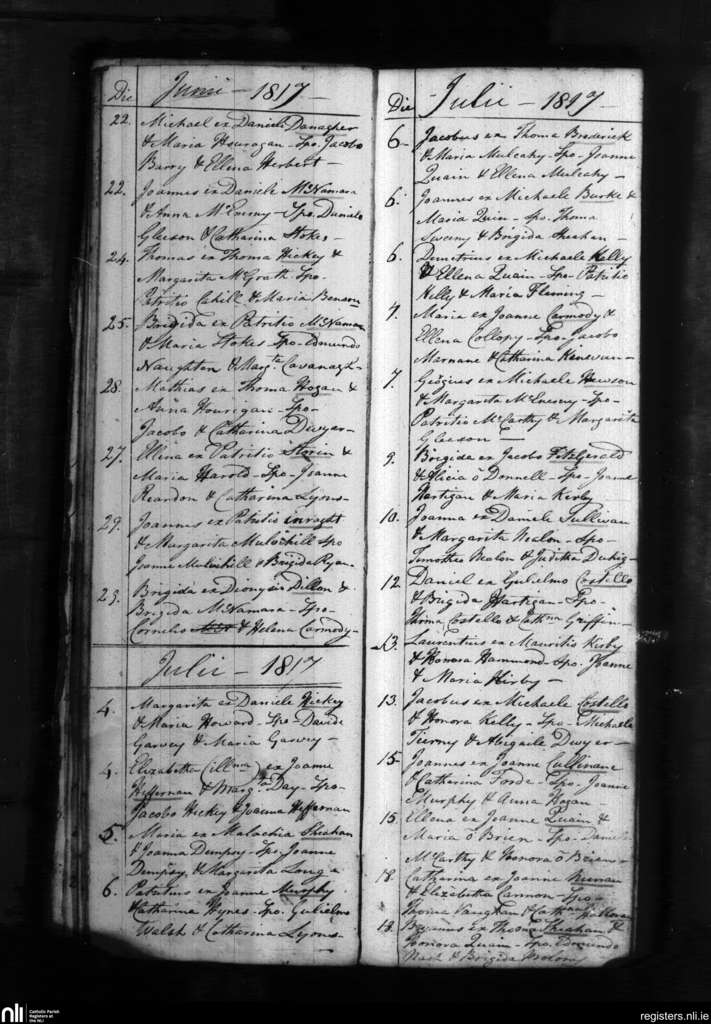 Die Junii - 1817 -
22. Michael ex Daniele Danagher
& Maria Hourogan - Spo. Jacobo
Barry & Ellena Herbert -
22. Joannes ex Daniele McNamara
& Anna McEneny - Spo. Daniele
Gleeson & Catharina Stokes -
24. Thomas ex Thoma Hickey &
Margarita McGrath - Spo.
Patritio Cahill & Maria Benson
25. Brigida ex Patritio McNamara
& Maria Stokes - Spo - Edmundo
Naughton & Margta Cavanagh -
28. Mathias ex Thoma Hogan &
Anna Hourigan - Spo -
Jacobo & Catharina Dwyer -
27. Ellena ex Patritio Storin &
Maria Harold - Spo - Joanne
Reardon & Catharina Lyons -
29. Joannes ex Patritio
& Margarita Mulchill Spo
Joanne & Brigida Ryan -
29. Brigida ex Dionysio Dillon &
Brigida McNamara - Spo -
Cornelio & Helena Carmody -
Julii - 1817
4. Margarita ex Daniele Hickey
& Maria Howard - Spo - Davide
Garvey & Maria Garvey -
4. Elizabetha (illena) ex Joanne
Heffernan & Margta Day - Spo -
Jacobo Hickey & Joanna Heffernan
5. Maria ex Malachia Sheahan
& Joanna Dempsy - Spo. Joanne
Dempsy & Margarita Long
6. Patritius ex Joanne Murphy
& Catharina Hynes - Spo. Gulielmo
Walsh & Catharina Lyons -
Die Julii - 1817
6 - Jacobus ex Thoma Broderick
& Maria Mulcahy - Spo - Joanne
Quain & Ellena Mulcahy -
6. Joannes ex Michaele Burke &
Maria Quin - Spo. Thoma
Sweeny & Brigida Sheahan -
6. Demetrius ex Michaele Kelly
& Ellena Quain - Spo - Patritio
Kelly & Maria Fleming -
7. Maria ex Joanne Carmody &
Ellena Collopy - Spo - Jacobo
Marnane & Catharina
7. Geōgius ex Michaele Hewson
& Margarita McEneny - Spo -
Patritio McCarthy & Margarita
Gleeson -
9. Brigida ex Jacobo Fitzgerald
& Alicia ō Donnell - Spo - Joanne
Hartigan & Maria Kerby
10. Joanna ex Daniele Sullivan
& Margarita Nealon - Spo -
Timotheo Nealon & Juditha Duhig -
12. Daniel ex Gulielmo Costello
& Brigida Hartigan - Spo -
Thoma Costello & Cathna Griffin -
13. Laurentius ex Mauritio Kirby
& Honora Hammond - Spo. Joanne
& Maria Kirby -
13. Jacobus ex Michaele Costello
& Honora Kelly - Spo - Michaele
Tierny & Abigaile Dwyer -
15 - Joannes ex Joanne Cullinane
& Catharina Forde - Spo - Joanne
Murphy & Anna Hogan -
15. Ellena ex Joanne Quain &
Maria ō Brien - Spo - Daniele
McCarthy & Honora ō Brien -
18. Catharina ex Joanne Neenan
& Elizabetha Cannon - Spo -
Thoma Vaughan & Halloran
18. ex Thoma Sheahan &
Honora Quain - Spo. Edmundo
Nash & Brigida Molony
nli Catholic Parish
Registers at
the NLI
registers.nli.ie